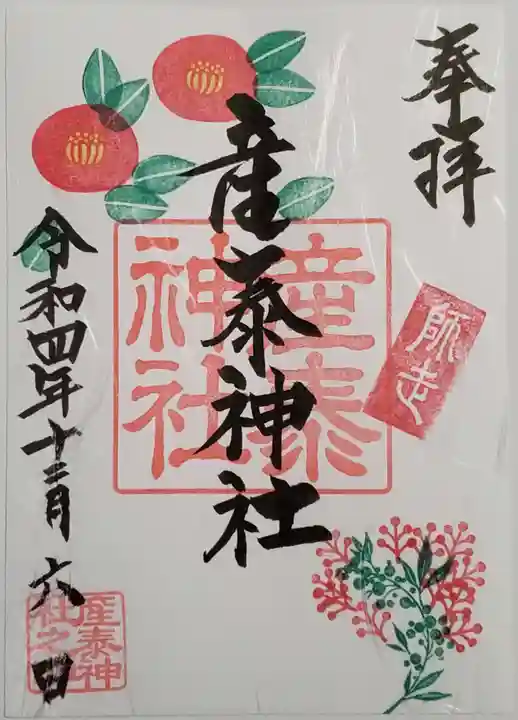 奉拝
師走
産泰神社
産泰神社
令和四年十二月六日
産泰神社之印